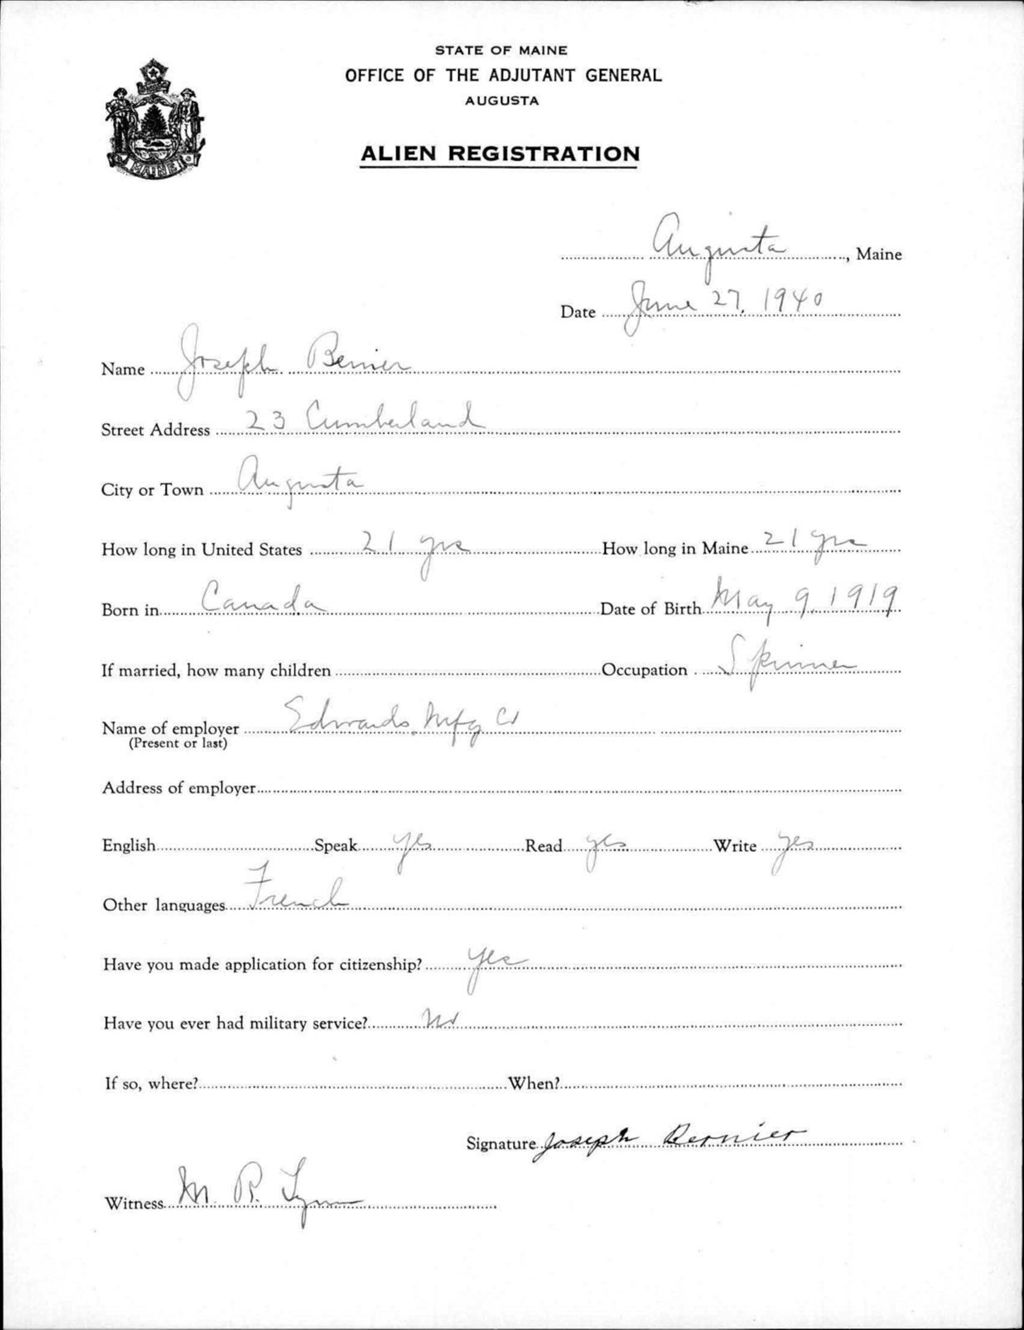 STATE OF MAINE
OFFICE OF THE ADJUTANT GENERAL
AUGUSTA
ALIEN REGISTRATION
MAINE
Augusta, Maine
Date June 27, 1940
Name Joseph Bernier
Street Address 23 Cumberland
City or Town Augusta
How long in United States 21 yrs How long in Maine 21 yrs
Born in Canada Date of Birth May 9, 1919
If married, how many children Occupation Spinner
Name of employer Edwards Mfg Co
(Present or last)
Address of employer
English Speak yes Read yes Write yes
Other languages French
Have you made application for citizenship? yes
Have you ever had military service? No
If so, where? When?
Signature Joseph Bernier
Witness M. R. Lynn